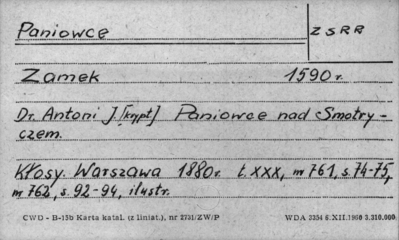 Paniowce
ZSRR
Zamek 1590 r.
Dr. Antoni J. [krypt.] Paniowce nad Smotry-
czem.
Kłosy. Warszawa 1880r. t. XXX, nr 761, s. 74-75,
nr 762, s. 92-94, ilustr.
CWD - B-15b Karta katal. (z liniat.), nr 2731/ZW/P WDA 3254 6.XII.1960 3.310.000